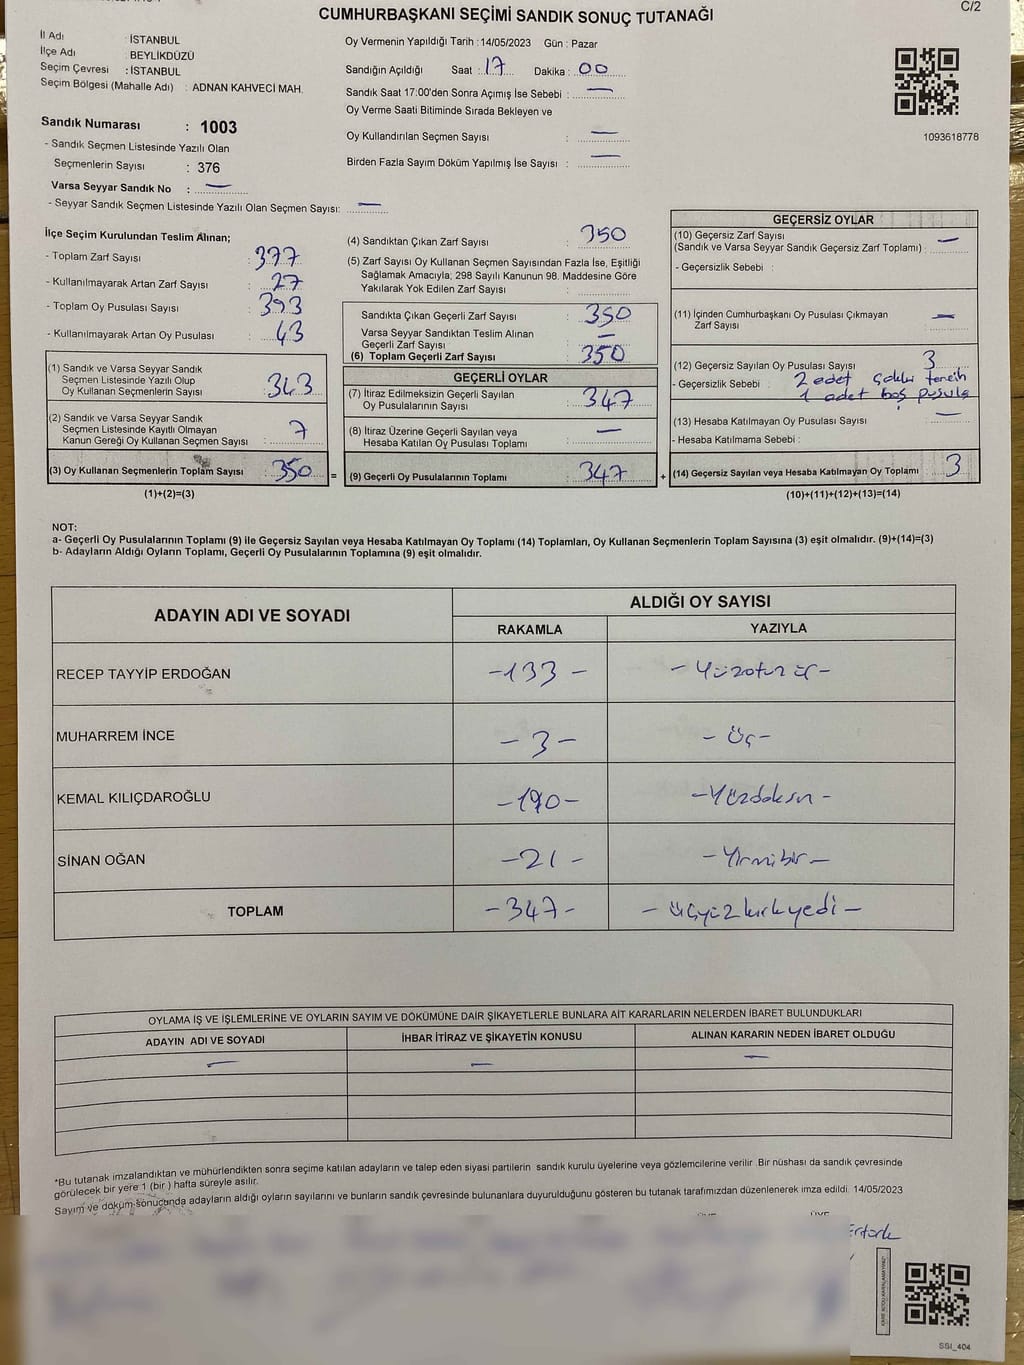 C/2
CUMHURBAŞKANI SEÇİMİ SANDIK SONUÇ TUTANAĞI
İl Adı : İSTANBUL
İlçe Adı : BEYLİKDÜZÜ
Seçim Çevresi : İSTANBUL
Seçim Bölgesi (Mahalle Adı) : ADNAN KAHVECİ MAH.
Sandık Numarası : 1003
- Sandık Seçmen Listesinde Yazılı Olan
Seçmenlerin Sayısı : 376
Varsa Seyyar Sandık No : —
- Seyyar Sandık Seçmen Listesinde Yazılı Olan Seçmen Sayısı: —
Oy Vermenin Yapıldığı Tarih : 14/05/2023 Gün : Pazar
Sandığın Açıldığı Saat : 17 Dakika : 00
Sandık Saat 17:00'den Sonra Açımış İse Sebebi : —
Oy Verme Saati Bitiminde Sırada Bekleyen ve
Oy Kullandırılan Seçmen Sayısı : —
Birden Fazla Sayım Döküm Yapılmış İse Sayısı : —
1093618778
İlçe Seçim Kurulundan Teslim Alınan;
- Toplam Zarf Sayısı : 377
- Kullanılmayarak Artan Zarf Sayısı : 27
- Toplam Oy Pusulası Sayısı : 393
- Kullanılmayarak Artan Oy Pusulası : 43
(1) Sandık ve Varsa Seyyar Sandık
Seçmen Listesinde Yazılı Olup
Oy Kullanan Seçmenlerin Sayısı : 343
(2) Sandık ve Varsa Seyyar Sandık
Seçmen Listesinde Kayıtlı Olmayan
Kanun Gereği Oy Kullanan Seçmen Sayısı : 7
(3) Oy Kullanan Seçmenlerin Toplam Sayısı : 350 =
(1)+(2)=(3)
(4) Sandıktan Çıkan Zarf Sayısı : 350
(5) Zarf Sayısı Oy Kullanan Seçmen Sayısından Fazla İse, Eşitliği
Sağlamak Amacıyla; 298 Sayılı Kanunun 98. Maddesine Göre
Yakılarak Yok Edilen Zarf Sayısı :
Sandıkta Çıkan Geçerli Zarf Sayısı : 350
Varsa Seyyar Sandıktan Teslim Alınan
Geçerli Zarf Sayısı : —
(6) Toplam Geçerli Zarf Sayısı : 350
GEÇERLİ OYLAR
(7) İtiraz Edilmeksizin Geçerli Sayılan
Oy Pusulalarının Sayısı : 347
(8) İtiraz Üzerine Geçerli Sayılan veya
Hesaba Katılan Oy Pusulası Toplamı : —
(9) Geçerli Oy Pusulalarının Toplamı : 347 +
GEÇERSİZ OYLAR
(10) Geçersiz Zarf Sayısı
(Sandık ve Varsa Seyyar Sandık Geçersiz Zarf Toplamı) : —
- Geçersizlik Sebebi :
(11) İçinden Cumhurbaşkanı Oy Pusulası Çıkmayan
Zarf Sayısı : —
(12) Geçersiz Sayılan Oy Pusulası Sayısı : 3
- Geçersizlik Sebebi : 2 adet çoklu tercih
1 adet boş pusula
(13) Hesaba Katılmayan Oy Pusulası Sayısı : —
- Hesaba Katılmama Sebebi :
(14) Geçersiz Sayılan veya Hesaba Katılmayan Oy Toplamı : 3
(10)+(11)+(12)+(13)=(14)
NOT:
a- Geçerli Oy Pusulalarının Toplamı (9) ile Geçersiz Sayılan veya Hesaba Katılmayan Oy Toplamı (14) Toplamları, Oy Kullanan Seçmenlerin Toplam Sayısına (3) eşit olmalıdır. (9)+(14)=(3)
b- Adayların Aldığı Oyların Toplamı, Geçerli Oy Pusulalarının Toplamına (9) eşit olmalıdır.
ADAYIN ADI VE SOYADI
ALDIĞI OY SAYISI
RAKAMLA YAZIYLA
RECEP TAYYİP ERDOĞAN -133- -Yüzotuz üç-
MUHARREM İNCE -3- -Üç-
KEMAL KILIÇDAROĞLU -190- -Yüzdoksan-
SİNAN OĞAN -21- -Yirmibir-
TOPLAM -347- -üçyüzkırkyedi-
OYLAMA İŞ VE İŞLEMLERİNE VE OYLARIN SAYIM VE DÖKÜMÜNE DAİR ŞİKAYETLERLE BUNLARA AİT KARARLARIN NELERDEN İBARET BULUNDUKLARI
ADAYIN ADI VE SOYADI İHBAR İTİRAZ VE ŞİKAYETİN KONUSU ALINAN KARARIN NEDEN İBARET OLDUĞU
— — —
*Bu tutanak imzalandıktan ve mühürlendikten sonra seçime katılan adayların ve talep eden siyasi partilerin sandık kurulu üyelerine veya gözlemcilerine verilir. Bir nüshası da sandık çevresinde
görülecek bir yere 1 (bir) hafta süreyle asılır.
Sayım ve döküm sonucunda adayların aldığı oyların sayılarını ve bunların sandık çevresinde bulunanlara duyurulduğunu gösteren bu tutanak tarafımızdan düzenlenerek imza edildi. 14/05/2023
SSI_404